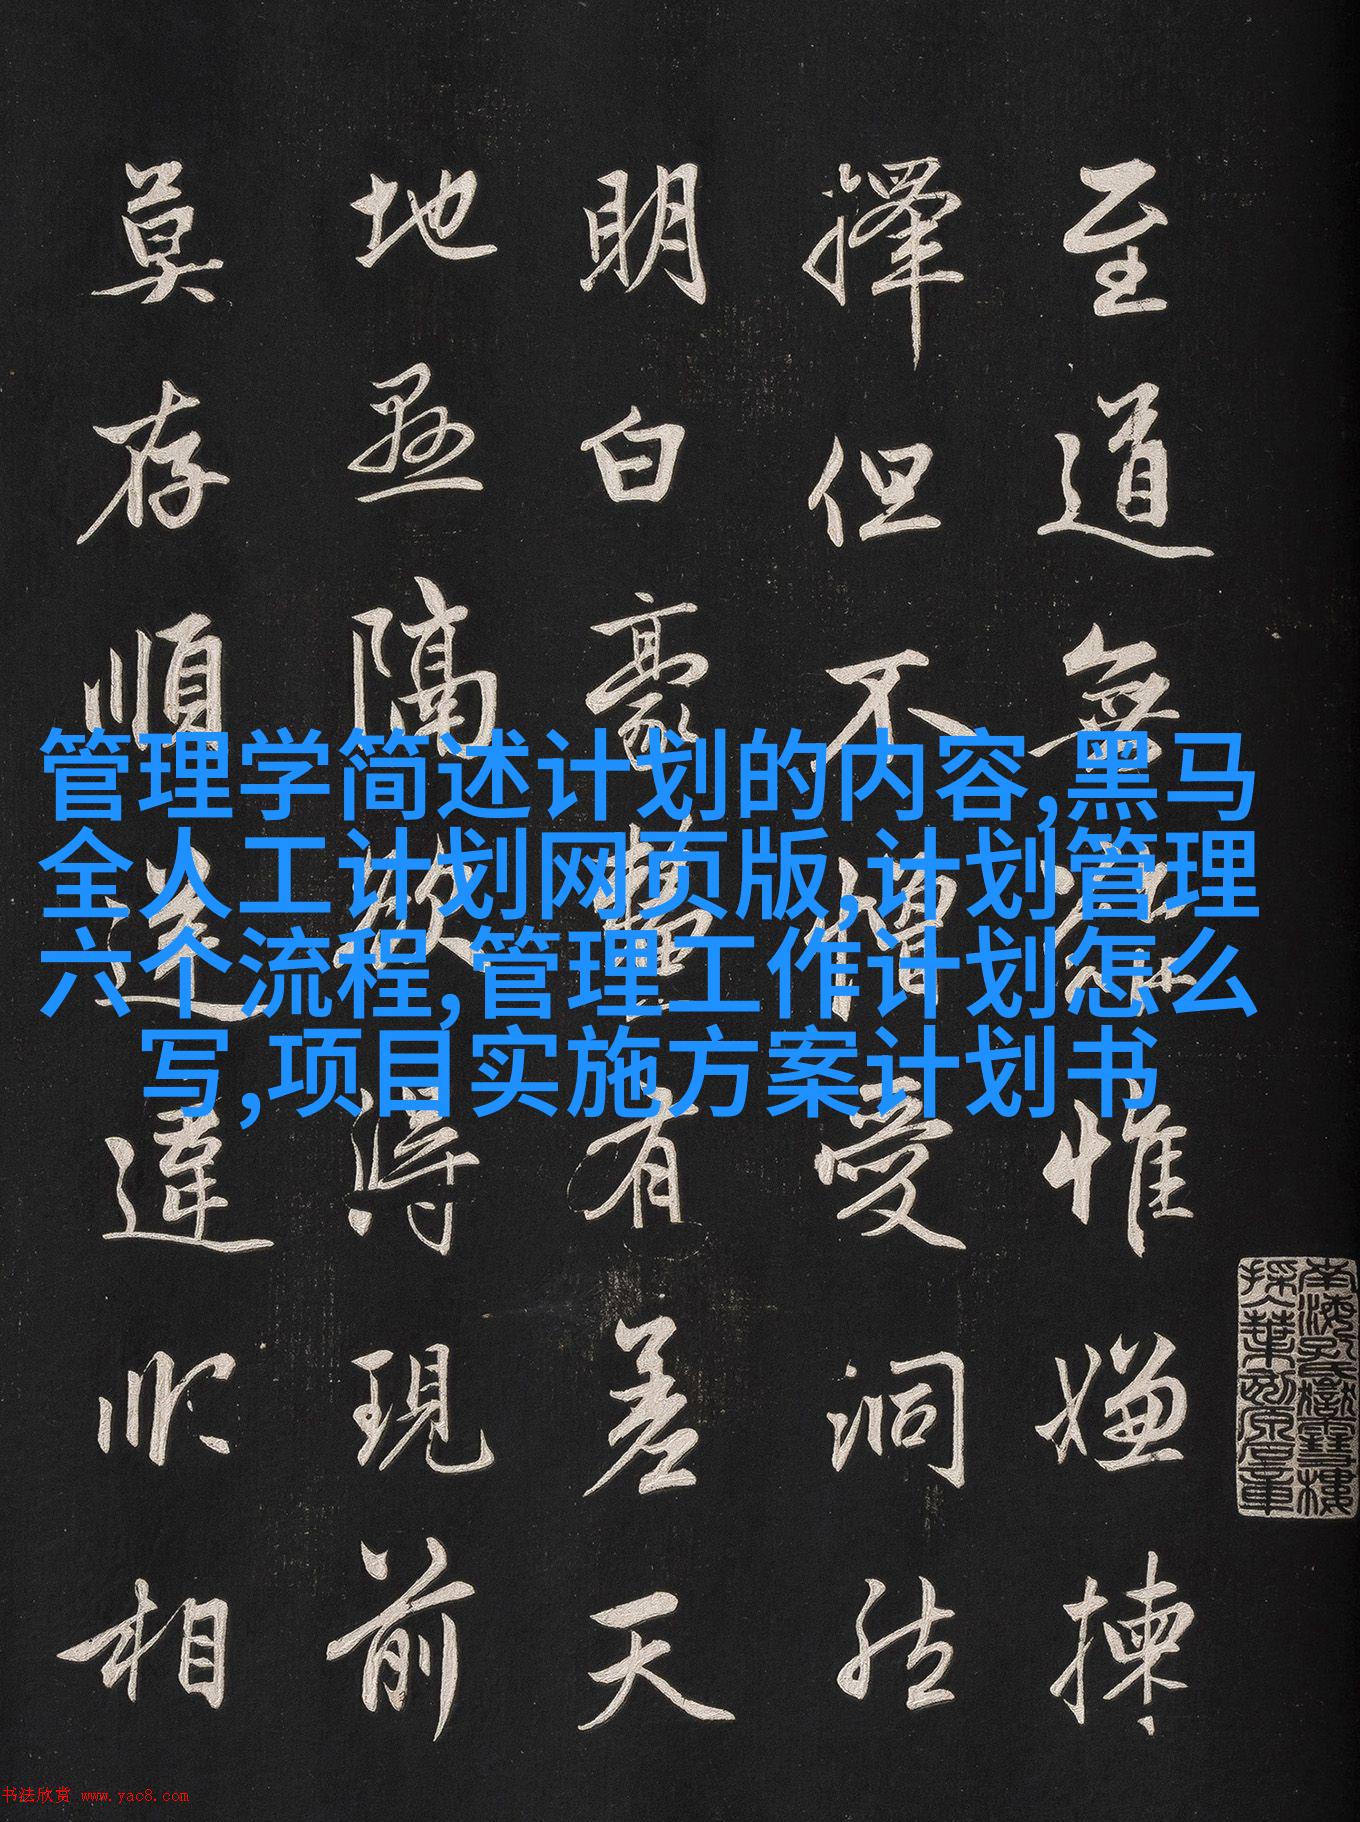 至道無惟嫌揀
擇但不憎愛洞然
明白豪有差天
地懸隔欲得現前
莫存順逆違順相
管理学简述计划的内容,黑马
全人工计划网页版,计划管理
六个流程,管理工作计划怎么
写,项目实施方案计划书
书法欣赏 www.yac8.com